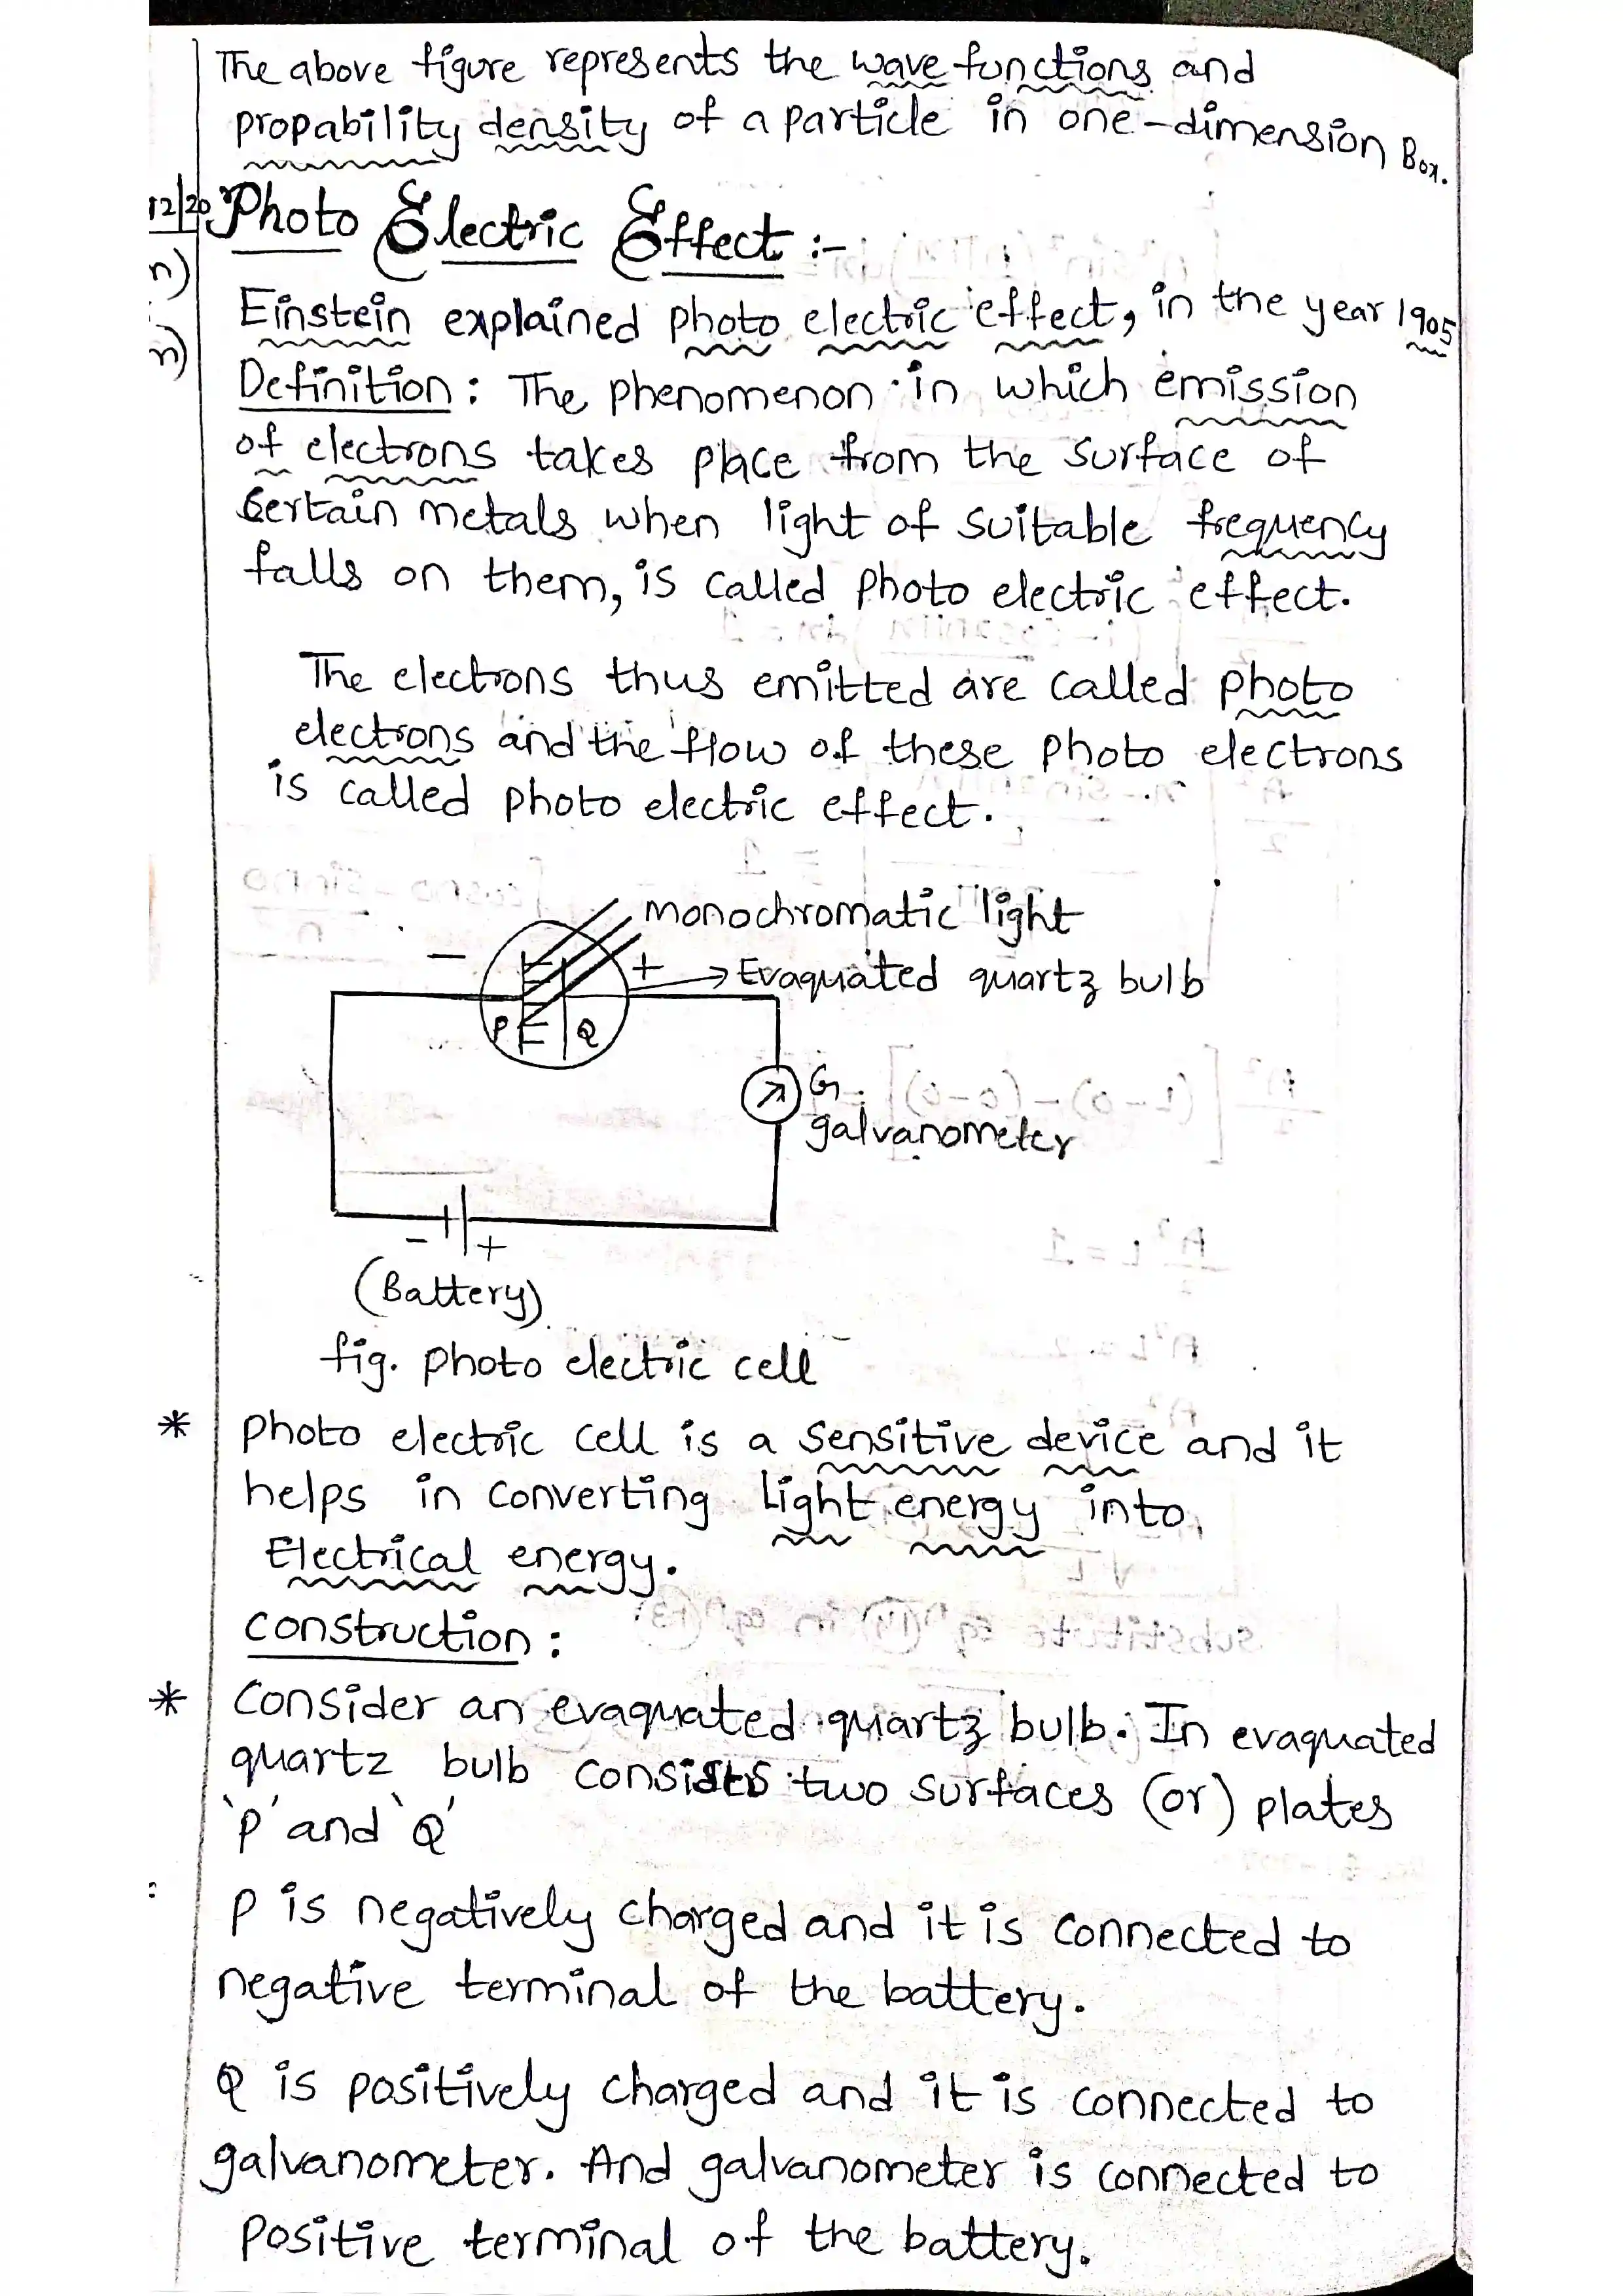 The above figure represents the wave functions and
propability density of a particle in one-dimension Box.
12/20
Photo Electric Effect :-
n)
Einstein explained photo electric effect, in the year 1905
n)
Definition : The phenomenon in which emission
of electrons takes place from the surface of
certain metals when light of suitable frequency
falls on them, is called photo electric effect.
The electrons thus emitted are called photo
electrons and the flow of these photo electrons
is called photo electric effect.
monochromatic light
- + → Evaquated quartz bulb
P Q
G
galvanometer
- +
(Battery)
fig. photo electric cell
* photo electric cell is a sensitive device and it
helps in converting light energy into
Electrical energy.
construction :
* Consider an evaquated quartz bulb. In evaquated
quartz bulb consists two surfaces (or) plates
'P' and 'Q'
P is negatively charged and it is connected to
negative terminal of the battery.
Q is positively charged and it is connected to
galvanometer. And galvanometer is connected to
Positive terminal of the battery.